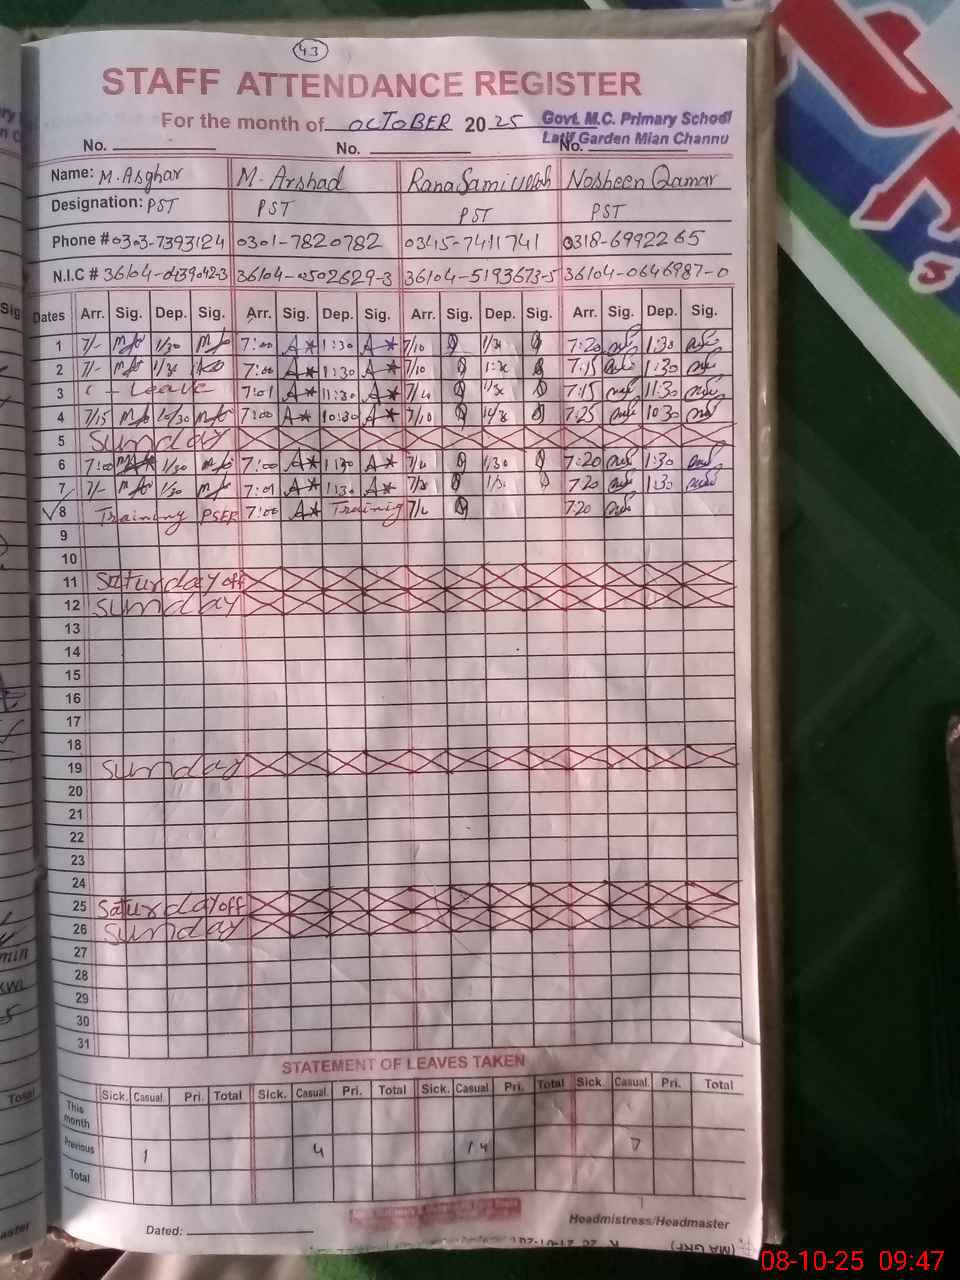 43
STAFF ATTENDANCE REGISTER
For the month of OCTOBER 2025 Govt. M.C. Primary School
Latif Garden Mian Channu
No. No. No.
Name: M. Asghar M. Arshad Rana Sami Ullah Nosheen Qamar
Designation: PST PST PST PST
Phone # 0303-7393124 0301-7820782 0345-7411741 0318-6992265
N.I.C # 36104-0439042-3 36104-0502629-3 36104-5193673-5 36104-0646987-0
Dates Arr. Sig. Dep. Sig. Arr. Sig. Dep. Sig. Arr. Sig. Dep. Sig. Arr. Sig. Dep. Sig.
1 7/- 1/30 7:00 1:30 7/10 1/30 7:20 1:30
2 7/- 1/30 7:00 1:30 7/10 1:30 7:15 1:30
3 Leave 7:01 11:30 1/30 7:15 11:30
4 7/15 10/30 7:00 10:30 7/10 10/30 7:25 10:30
5 Sunday
6 7:00 1/30 7:00 1:30 1/30 7:20 1:30
7 7/- 1/30 7:01 1:30 7:20 1:30
8 Training PSER 7:00 Trainig 7:20
9
10
11 Saturday off
12 Sunday
13
14
15
16
17
18
19 Sunday
20
21
22
23
24
25 Saturday off
26 Sunday
27
28
29
30
31
STATEMENT OF LEAVES TAKEN
Sick. Casual. Pri. Total Sick. Casual. Pri. Total Sick. Casual. Pri. Total Sick. Casual. Pri. Total
This month
Previous 1 4 14 7
Total
Dated: Headmistress/Headmaster
08-10-25 09:47